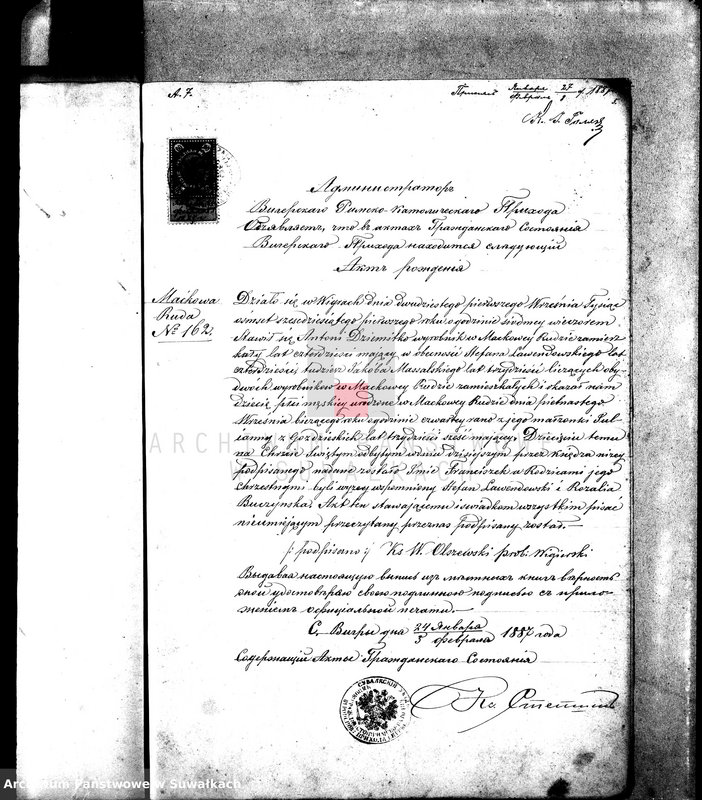 А. 7.
Января 27 1887
Февраля 8
Администраторъ
Вигерскаго Римско-Католическаго Прихода
Объявляетъ, что въ актахъ Гражданскаго Состоянія
Вигерскаго Прихода находится слѣдующій
Актъ рожденія
Maćkowa
Ruda
№ 162
Działo się w Wigrach dnia dwudziestego pierwszego Września Tysiąc
osmset szesdziesiątego pierwszego roku o godzinie siódmey wieczorem.
Stawił się Antoni Dziemitko wyrobnik w Maćkowey Rudzie zamiesz-
kały lat czterdzieści mający, w obecności Stefana Lawendowskiego lat
czterdzieści, tudzież Jakóba Massalskiego lat trzydzieści liczących oby-
dwóch wyrobników w Maćkowey Rudzie zamieszkałych i okazał nam
dziecię płci męskiey urodzone w Maćkowey Rudzie dnia piętnastego
Września bieżącego roku o godzinie czwartey rano z jego małżonki Jul-
ianny z Gordzieckich lat trzydzieści sześć mającey. Dziecięciu temu
na Chrzcie Świętym odbytym w dniu dzisiejszym przez księdza niżey
podpisanego nadane zostało Imię Franciszek a Rodzicami jego
chrzestnymi byli wyżey wspomniony Stefan Lawendowski i Rozalia
Buczyńska. Akt ten stawającemu i swiadkom wszystkim pisać
nieumiejącym przeczytany przez nas podpisany został.—
/: podpisano :/ Ks W. Olszewski prob: Wigierski
Выдавая настоящую выпись изъ метичныхъ книгъ вѣрность
оной удостовѣряю своею подлинною подписью съ прило-
женіемъ оффиціальной печати.—
С. Вигры дня 24 Января 1887 года
5 Февраля
Содержащій Акты Гражданскаго Состоянія
Кс.
ARCHIWUM
Archiwum Państwowe w Suwałkach